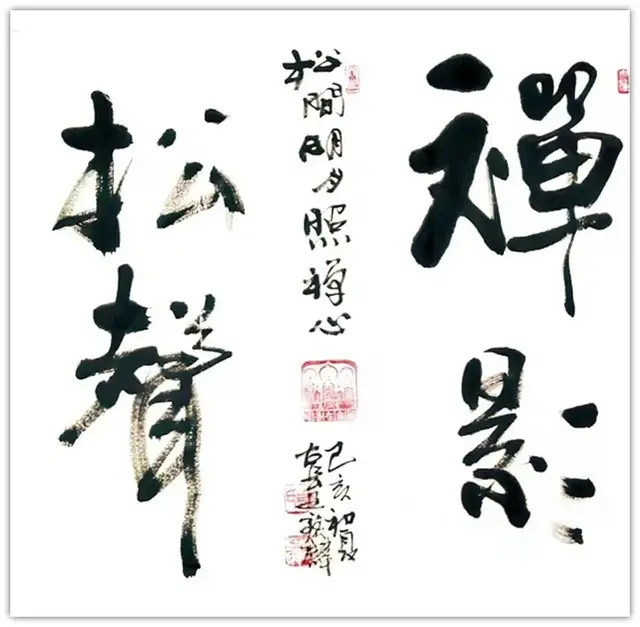 禪影
松間明月照禪心
己亥初夏
松聲